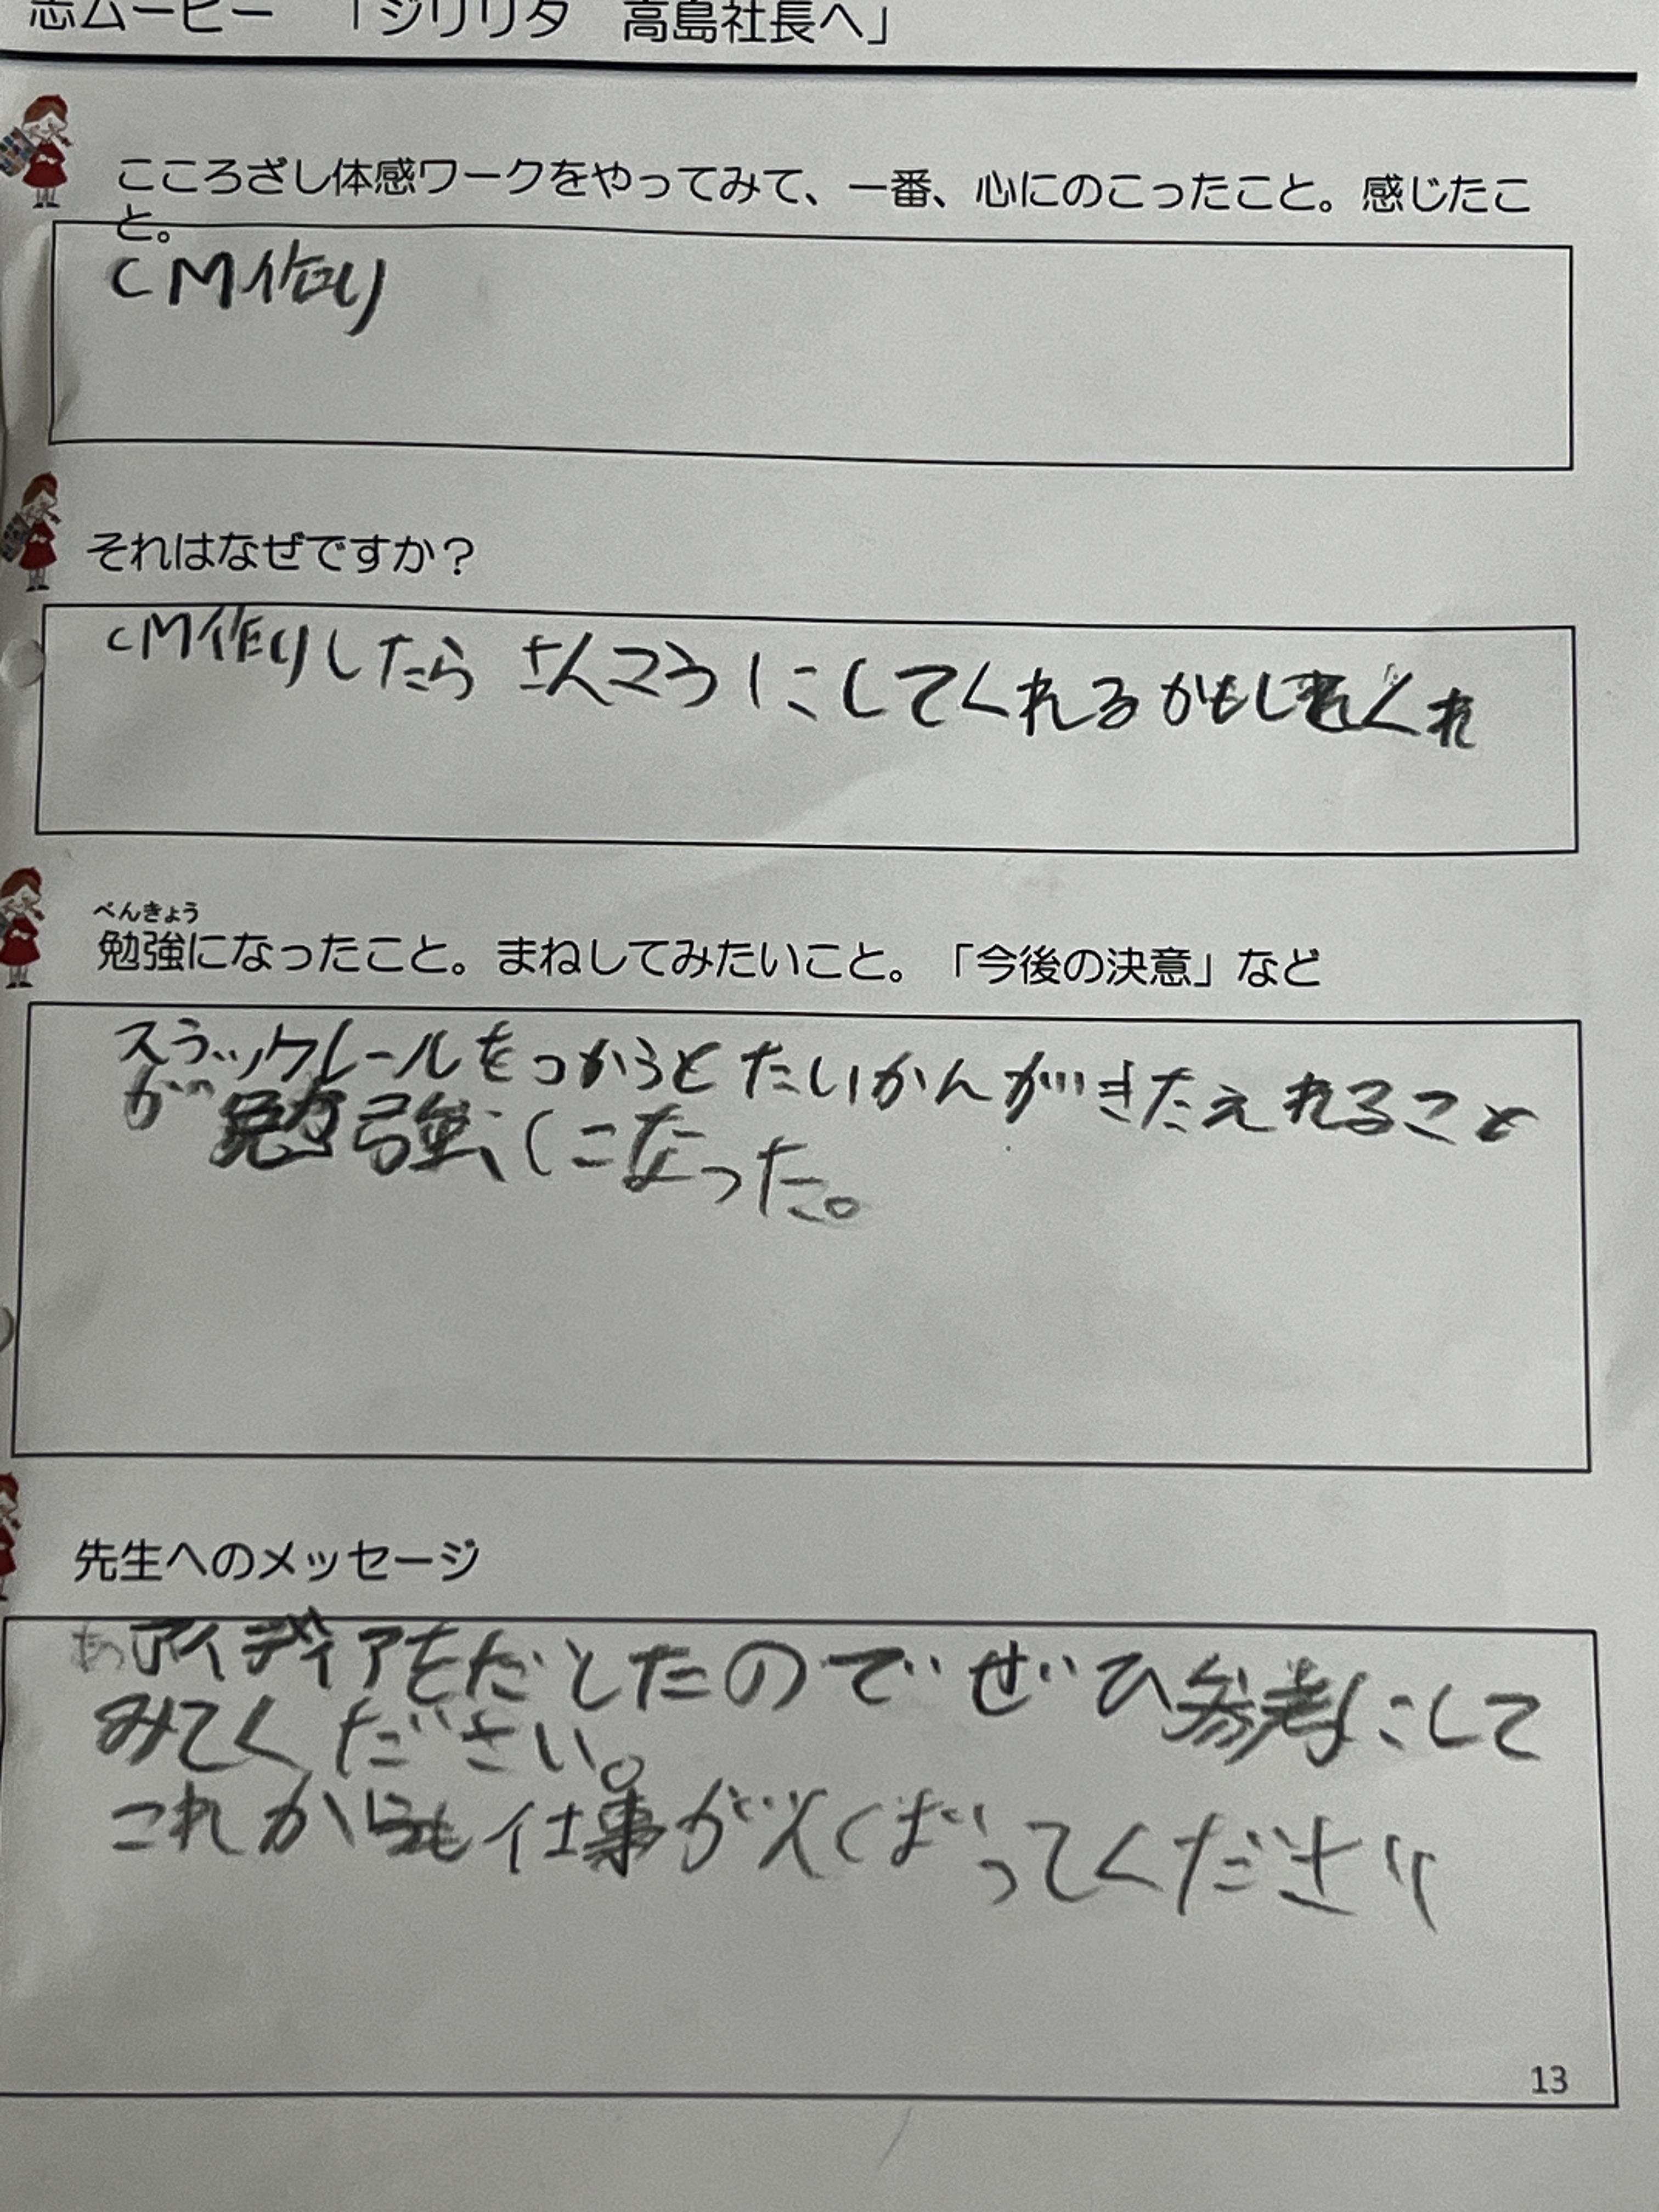 志ムービー 「ジリリタ 高島社長へ」
こころざし体感ワークをやってみて、一番、心にのこったこと。感じたこ
と。
CM作り
それはなぜですか？
CM作りしたら さんこうにしてくれるかもしれくれ
べんきょう
勉強になったこと。まねしてみたいこと。「今後の決意」など
スラックレールをつかうとたいかんがきたえれること
が勉強になった。
先生へのメッセージ
アイディアをだしたのでぜひ参考にして
みてください。
これからも仕事がんばってください
13